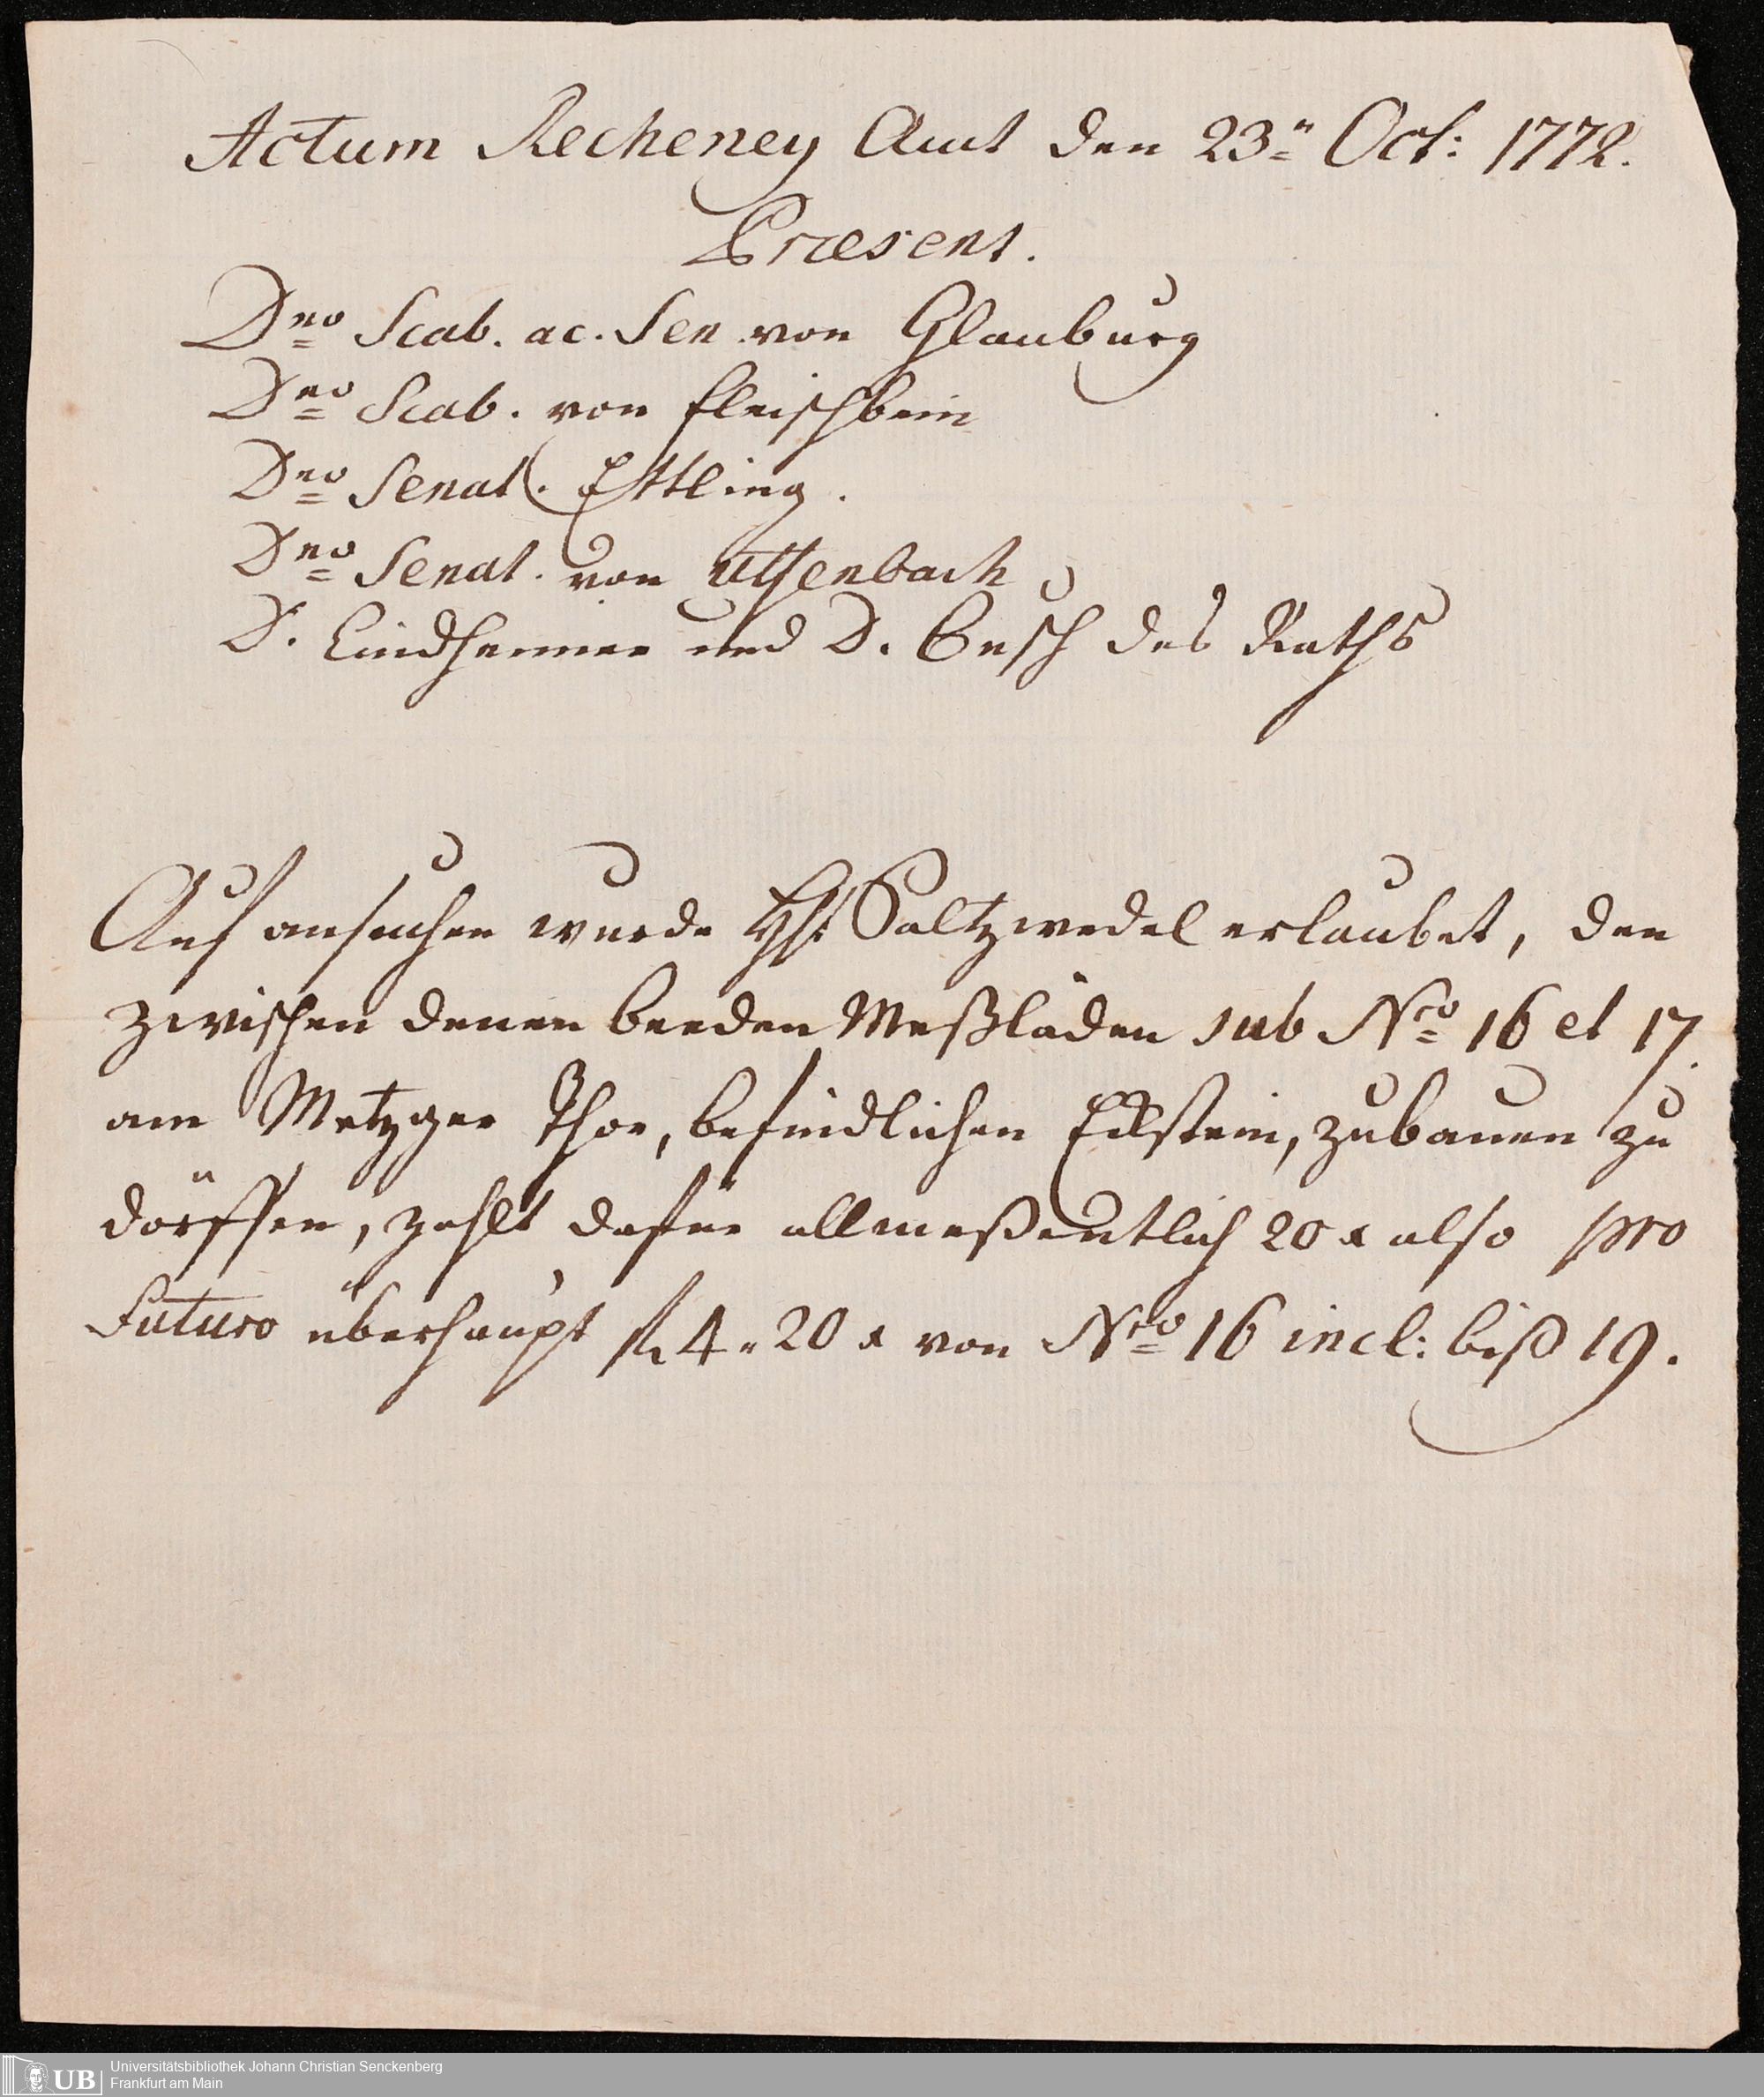 Actum Recheney Amt den 23n Oct: 1772.
Præsent.
Dno Scab. ac. Sen. von Glauburg
Dno Scab. von Fleischbein
Dno Senat. Ettling.
Dno Senat. von Uffenbach
D. Lindheimer und D. Busch des Raths
Auf ansuchen wurde H. Saltzwedel erlaubet, den
zwischen denen beeden Meßläden sub Nro 16 et 17.
am Metzger Thor, befindlichen Eckstein, zubauen zu
dörffen, zahlt dafür allmeßentlich 20 x also pro
Futuro überhaupt fl 4 „ 20 x von Nro 16 incl: biß 19.
UB
Universitätsbibliothek Johann Christian Senckenberg
Frankfurt am Main